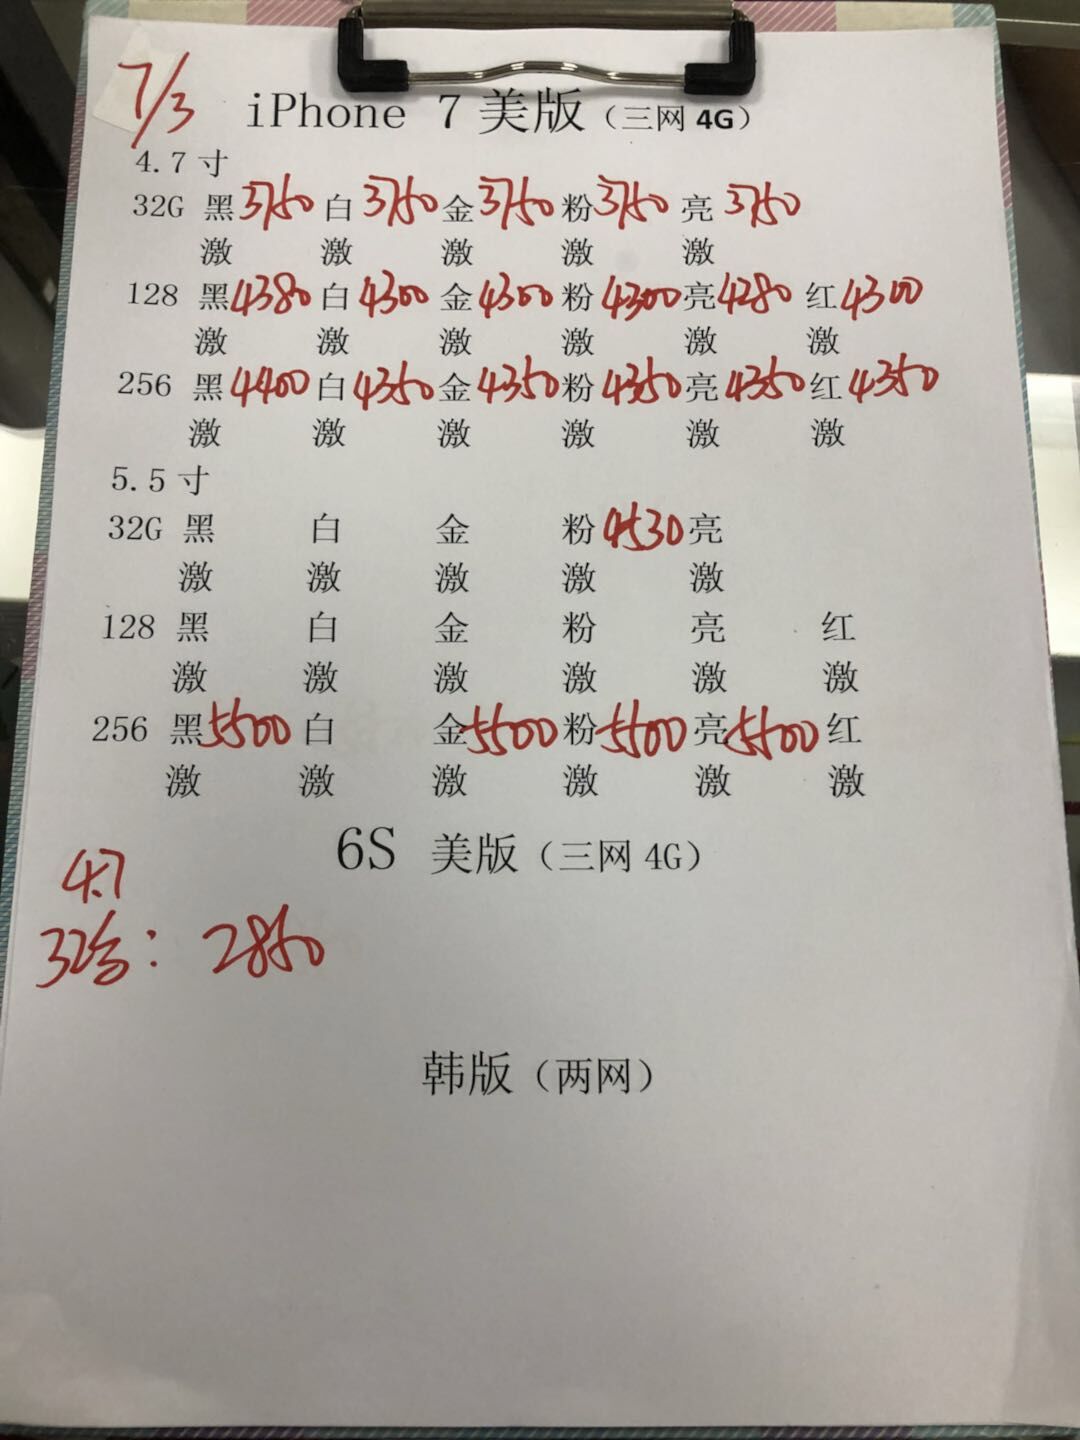 7/3
iPhone 7 美版（三网 4G）
4.7 寸
32G 黑 3750 白 3750 金 3750 粉 3750 亮 3750
激 激 激 激 激
128 黑 4380 白 4300 金 4300 粉 4300 亮 4280 红 4300
激 激 激 激 激 激
256 黑 4400 白 4350 金 4350 粉 4350 亮 4350 红 4350
激 激 激 激 激 激
5.5 寸
32G 黑 白 金 粉 4530 亮
激 激 激 激 激
128 黑 白 金 粉 亮 红
激 激 激 激 激 激
256 黑 5500 白 金 5500 粉 5500 亮 5500 红
激 激 激 激 激 激
6S 美版（三网 4G）
4.7
32金：2850
韩版（两网）